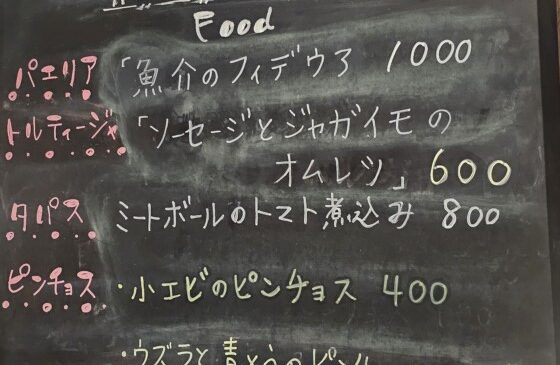 Food
パエリア 「魚介のフィデウア 1000
トルティージャ 「ソーセージとジャガイモの
オムレツ」 600
タパス ミートボールのトマト煮込み 800
ピンチョス ・小エビのピンチョス 400
・ウズラと青とうのピン